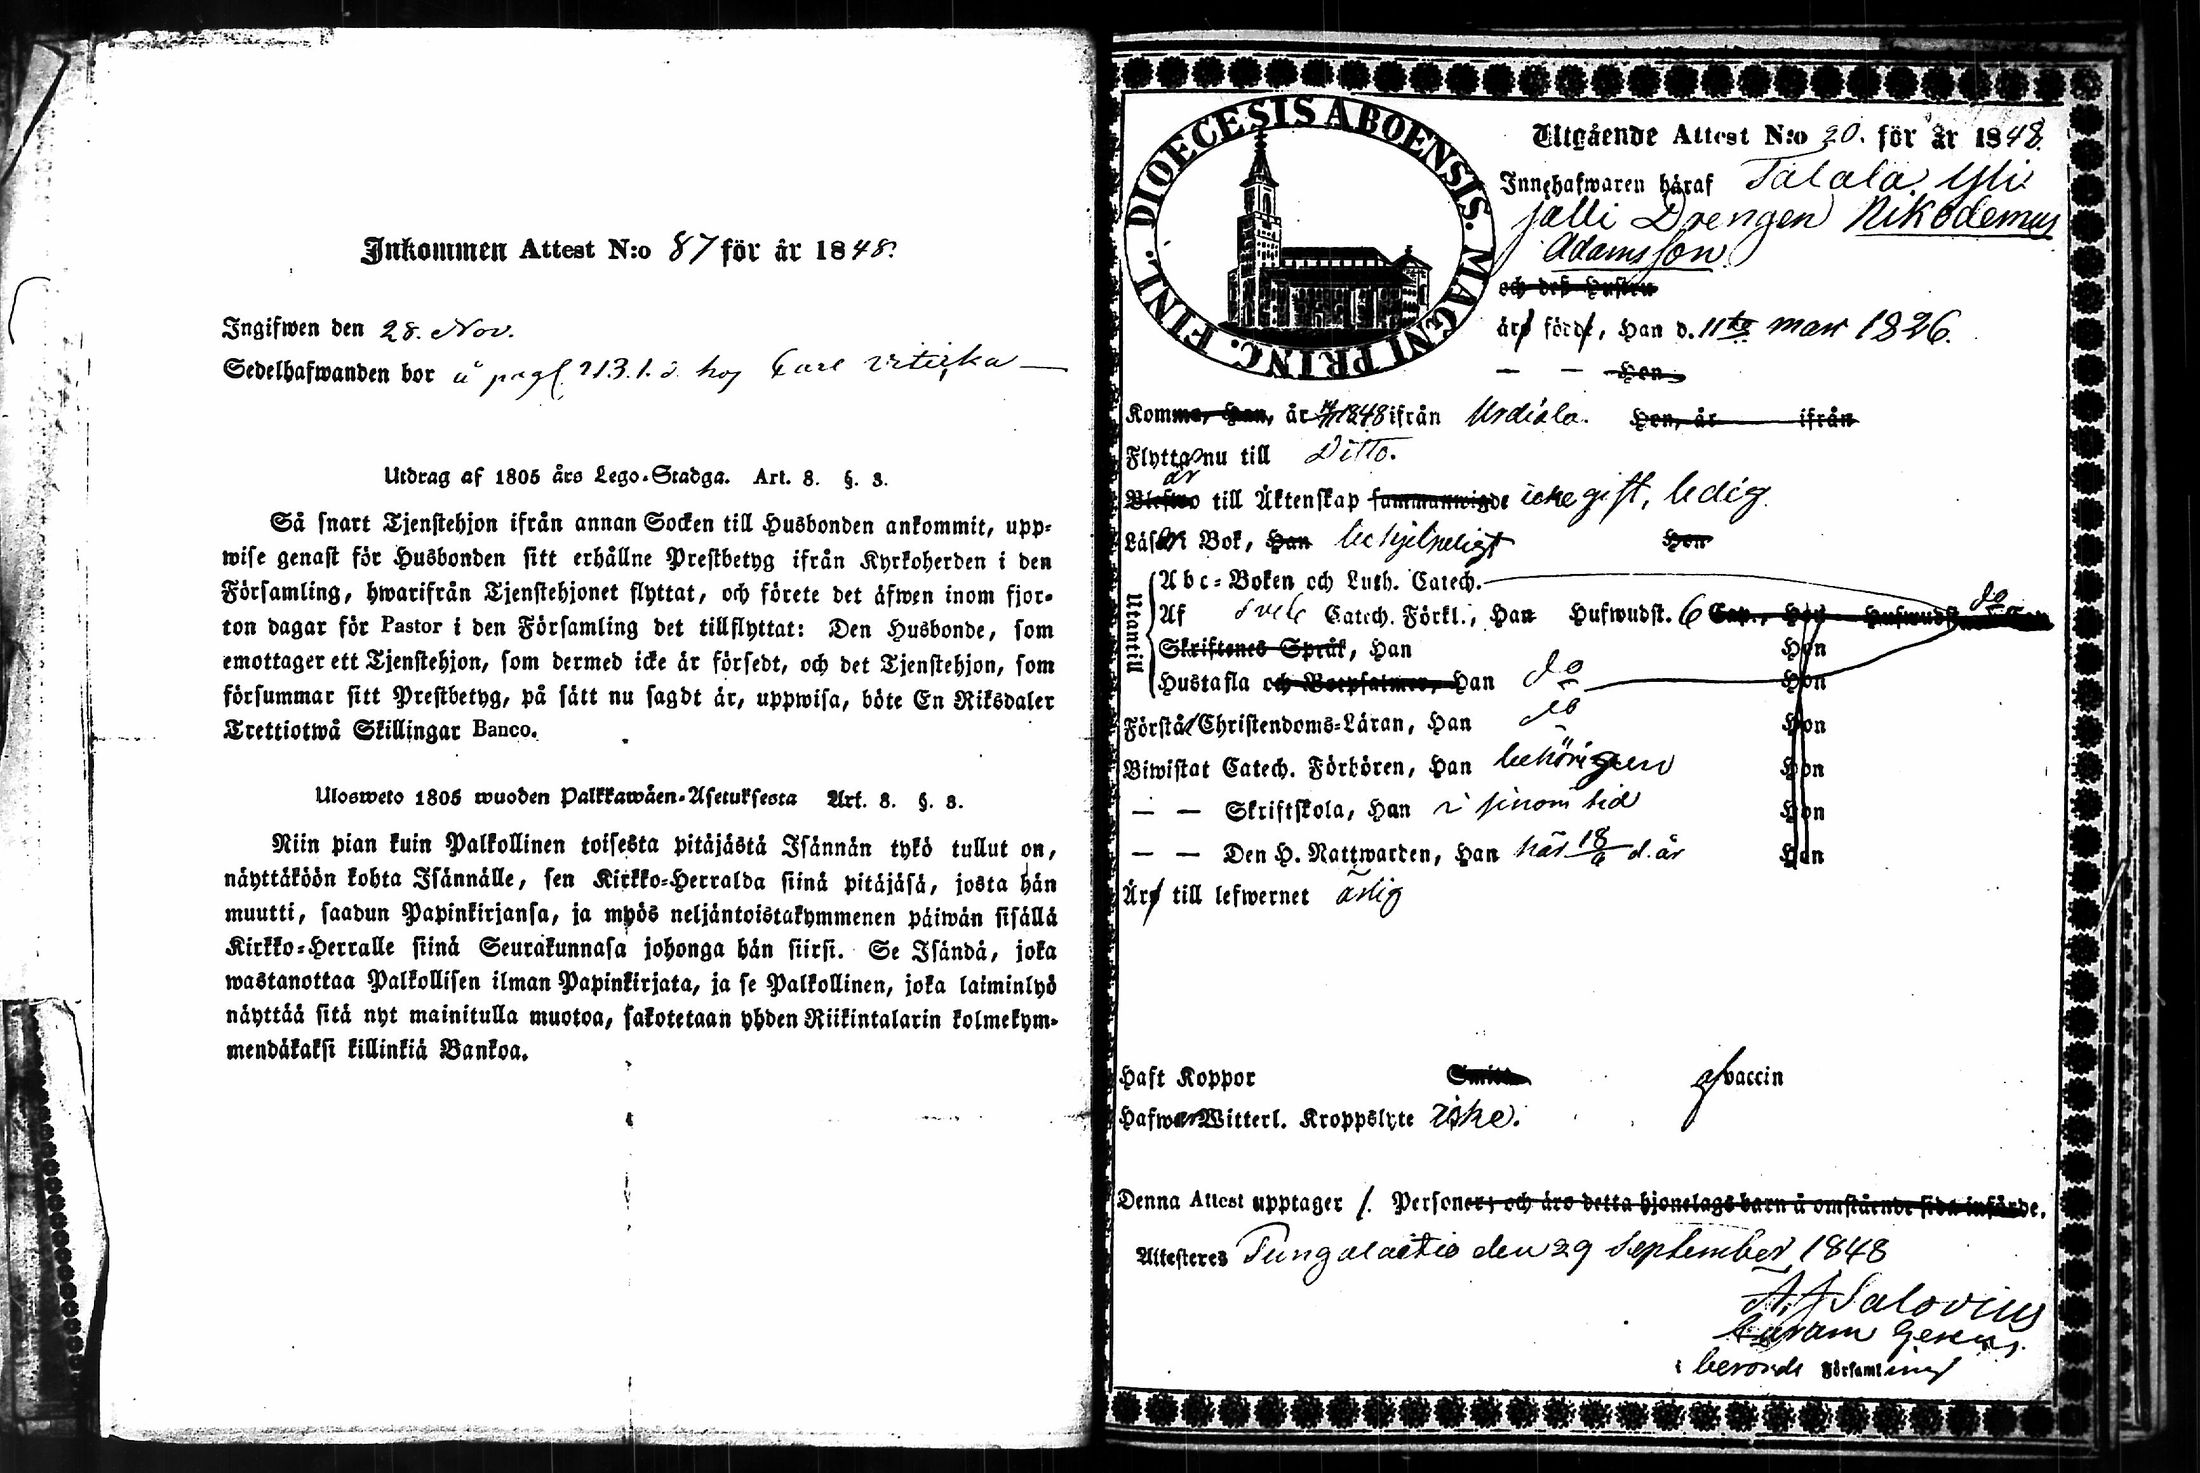 Inkommen Attest N:o 87 för år 1848.
Ingifwen den 28. Nov.
Sedelhafwanden bor å pag. 213.1. Carl
Utdrag af 1805 års Lego-Stadga. Art. 8. §. 3.
Så snart Tjenstehjon ifrån annan Socken till Husbonden ankommit, upp-
wise genast för Husbonden sitt erhållne Prestbetyg ifrån Kyrkoherden i den
Församling, hwarifrån Tjenstehjonet flyttat, och förete det äfwen inom fjor-
ton dagar för Pastor i den Församling det tillflyttat: Den Husbonde, som
emottager ett Tjenstehjon, som dermed icke är försedt, och det Tjenstehjon, som
försummar sitt Prestbetyg, på sätt nu sagdt är, uppwisa, böte En Riksdaler
Trettiotwå Skillingar Banco.
Ulosweto 1805 wuoden Palkkawäen-Asetuksesta Art. 8. §. 3.
Niin pian kuin Palkollinen toisesta pitäjästä Isännän tykö tullut on,
näyttäköön kohta Isännälle, sen Kirkko-Herralda siinä pitäjäsä, josta hän
muutti, saadun Papinkirjansa, ja myös neljäntoistakymmenen päiwän sisällä
Kirkko-Herralle siinä Seurakunnasa johonga hän siirsi. Se Isändä, joka
wastanottaa Palkollisen ilman Papinkirjata, ja se Palkollinen, joka laiminlyö
näyttää sitä nyt mainitulla muotoa, sakotetaan yhden Riikintalarin kolmekym-
mendäkaksi killinkiä Bankoa.
DIOECESIS ABOENSIS. MAGNI PRINC. FINL.
Utgående Attest N:o 20. för år 1848.
Innehafwaren häraf Talala Yli
jalli Drengen Nikodemus
Adamsson
och deß Hustru
äro född, Han d. 11te mars 1826.
— — Hon
Komme, Han, år 1848 ifrån Urdiala. Hon, år ifrån
Flyttar nu till Ditto.
är
till Äktenskap sammanwigde icke gift, ledig.
Läser i Bok, Han behjelpeligt Hon
Utantill
Abc-Boken och Luth. Catech.
Af Sveb Catech. Förkl., Han Hufwudst. 6 Cap., Hon Hufwudst. do
Skriftenes Språk, Han Hon
Hustafla och Botpsalmer, Han do Hon
Förstår Christendoms-Läran, Han do Hon
Biwistat Catech. Förhören, Han behörigen Hon
— — Skriftskola, Han i sinom tid Hon
— — Den H. Nattwarden, Han här 18/6 d. år Hon
Är till lefwernet ärlig
Haft Koppor af vaccin
Hafwer Witterl. Kroppslyte icke.
Denna Attest upptager 1. Personer; och äro detta hjonelags barn å omstående sida införde.
Attesteres Fungalaitio den 29 September 1848
A. F. Salovius
Curam Gerens
i berörde Församling